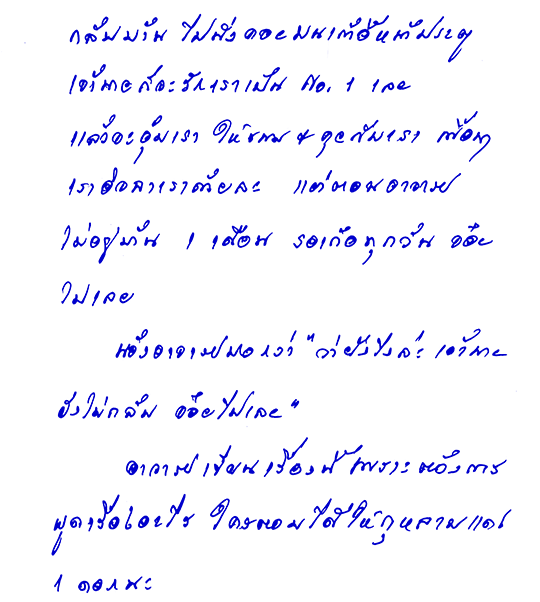 กลับบ้าน ไปนั่งคอยบนเก้าอี้หน้าประตู
เจ้านายก็จะรักเราเป็น No. 1 เลย
แล้วจะอุ้มเรา ให้ขนม & คุยกับเรา เพื่อนๆ
เราอิจฉาเราด้วยละ แต่ตอนอาจารย์
ไม่อยู่บ้าน 1 เดือน รอเก้อทุกวัน จ๋อย
ไปเลย
น้องอาจารย์บอกว่า "ว่ายังไงล่ะ เจ้านาย
ยังไม่กลับ จ๋อยไปเลย"
อาจารย์เขียนเรื่องนี้ เพราะต้องการ
พูดเรื่องอะไร ใครตอบได้ให้กุหลาบแดง
1 ดอกนะ